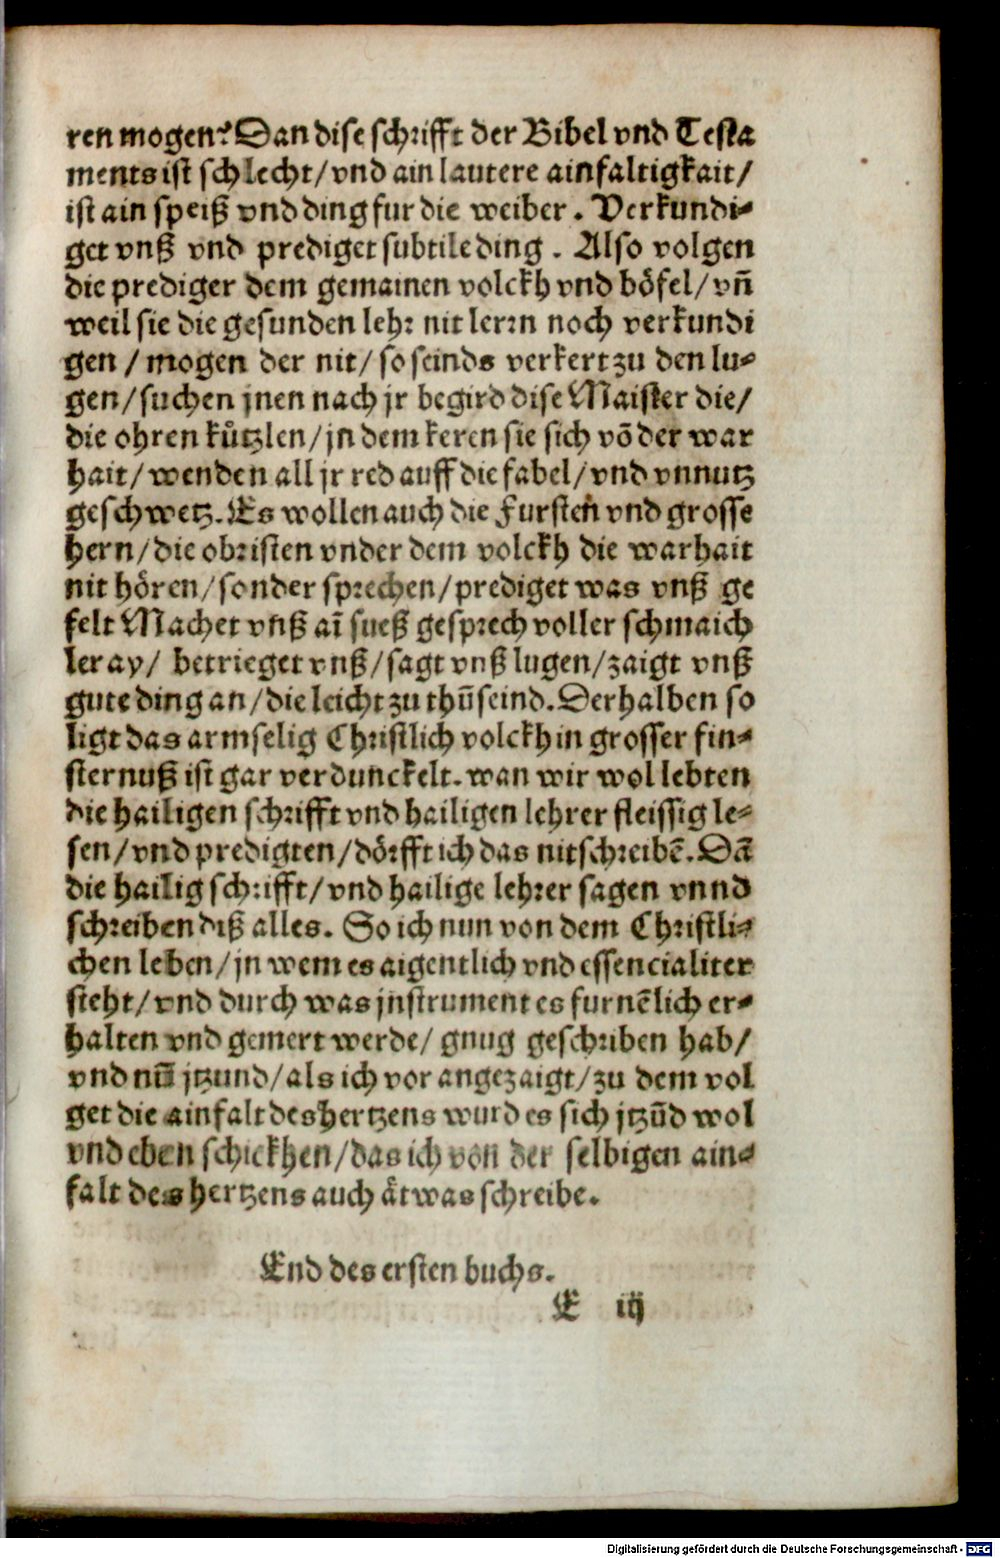 ren mogen? Dan dise schrifft der Bibel vnd Testa
ments ist schlecht/ vnd ain lautere ainfaltigkait/
ist ain speiß vnd ding fur die weiber. Verkundi-
get vnß vnd prediget subtile ding. Also volgen
die prediger dem gemainen volckh vnd böfel/ vñ
weil sie die gesunden lehr nit lerrn noch verkundi
gen/ mogen der nit/ so seinds verkert zu den lu-
gen/ suchen jnen nach jr begird dise Maister die/
die ohren kuͤtzlen/ jn dem keren sie sich võ der war
hait/ wenden all jr red auff die fabel/ vnd vnnutz
geschwetz. Es wollen auch die Fursten vnd grosse
hern/ die obristen vnder dem volckh die warhait
nit hören/ sonder sprechen/ prediget was vnß ge
felt Machet vnß aĩ sueß gesprech voller schmaich
leray/ betrieget vnß/ sagt vnß lugen/ zaigt vnß
gute ding an/ die leicht zu thũ seind. Derhalben so
ligt das armselig Christlich volckh in grosser fin-
sternuß ist gar verdunckelt. wan wir wol lebten
die hailigen schrifft vnd hailigen lehrer fleissig le-
sen/ vnd predigten/ dörfft ich das nit schreibẽ. Dã
die hailig schrifft/ vnd hailige lehrer sagen vnnd
schreiben diß alles. So ich nun von dem Christli-
chen leben/ jn wem es aigentlich vnd essencialiter
steht/ vnd durch was jnstrument es furnẽlich er-
halten vnd gemert werde/ gnug geschriben hab/
vnd nũ jtzund/ als ich vor angezaigt/ zu dem vol
get die ainfalt des hertzens wurd es sich jtzũd wol
vnd eben schickhen/ das ich von der selbigen ain-
falt des hertzens auch ätwas schreibe.
End des ersten buchs.
E iij
Digitalisierung gefördert durch die Deutsche Forschungsgemeinschaft - DFG